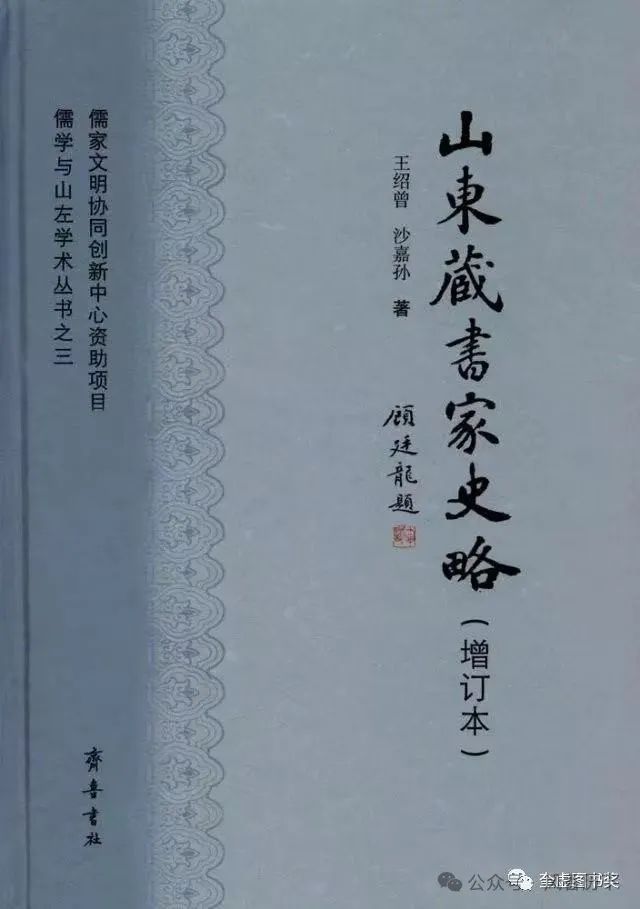 山東藏書家史略
(增订本)
王绍曾 沙嘉孙 著
顾廷龍題
儒家文明协同创新中心资助项目
儒学与山左学术丛书之三
齊魯書社
公众号
奎虚图书奖